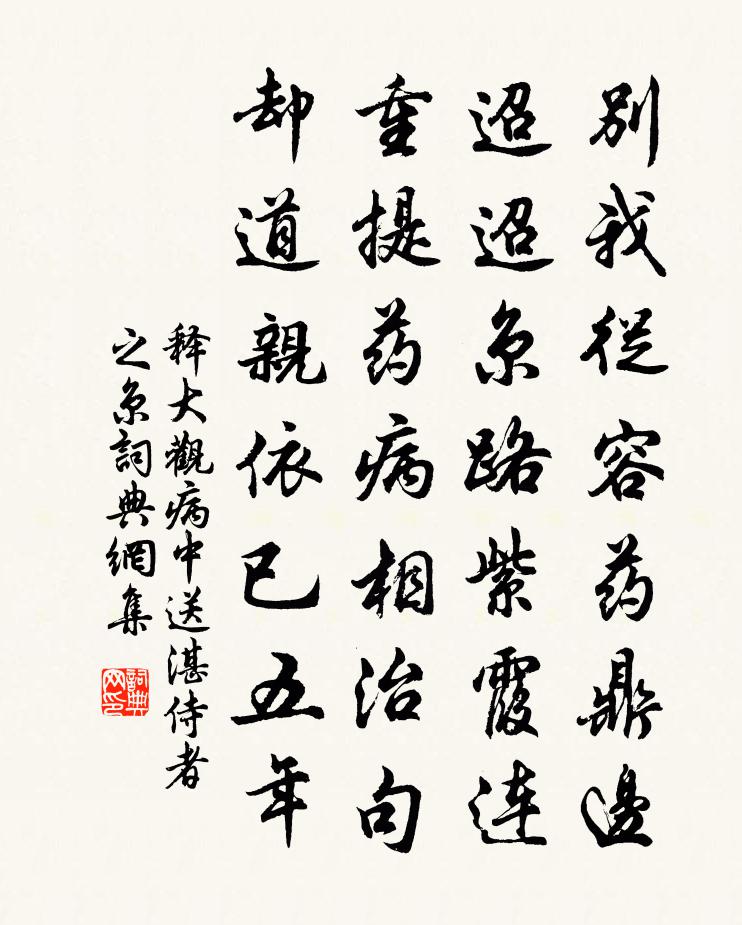 別我從容药鼎邊
迢迢京路紫霞連
重提药病相治句
却道親依已五年
释大觀病中送湛侍者
之京詞典網集
詞典网印